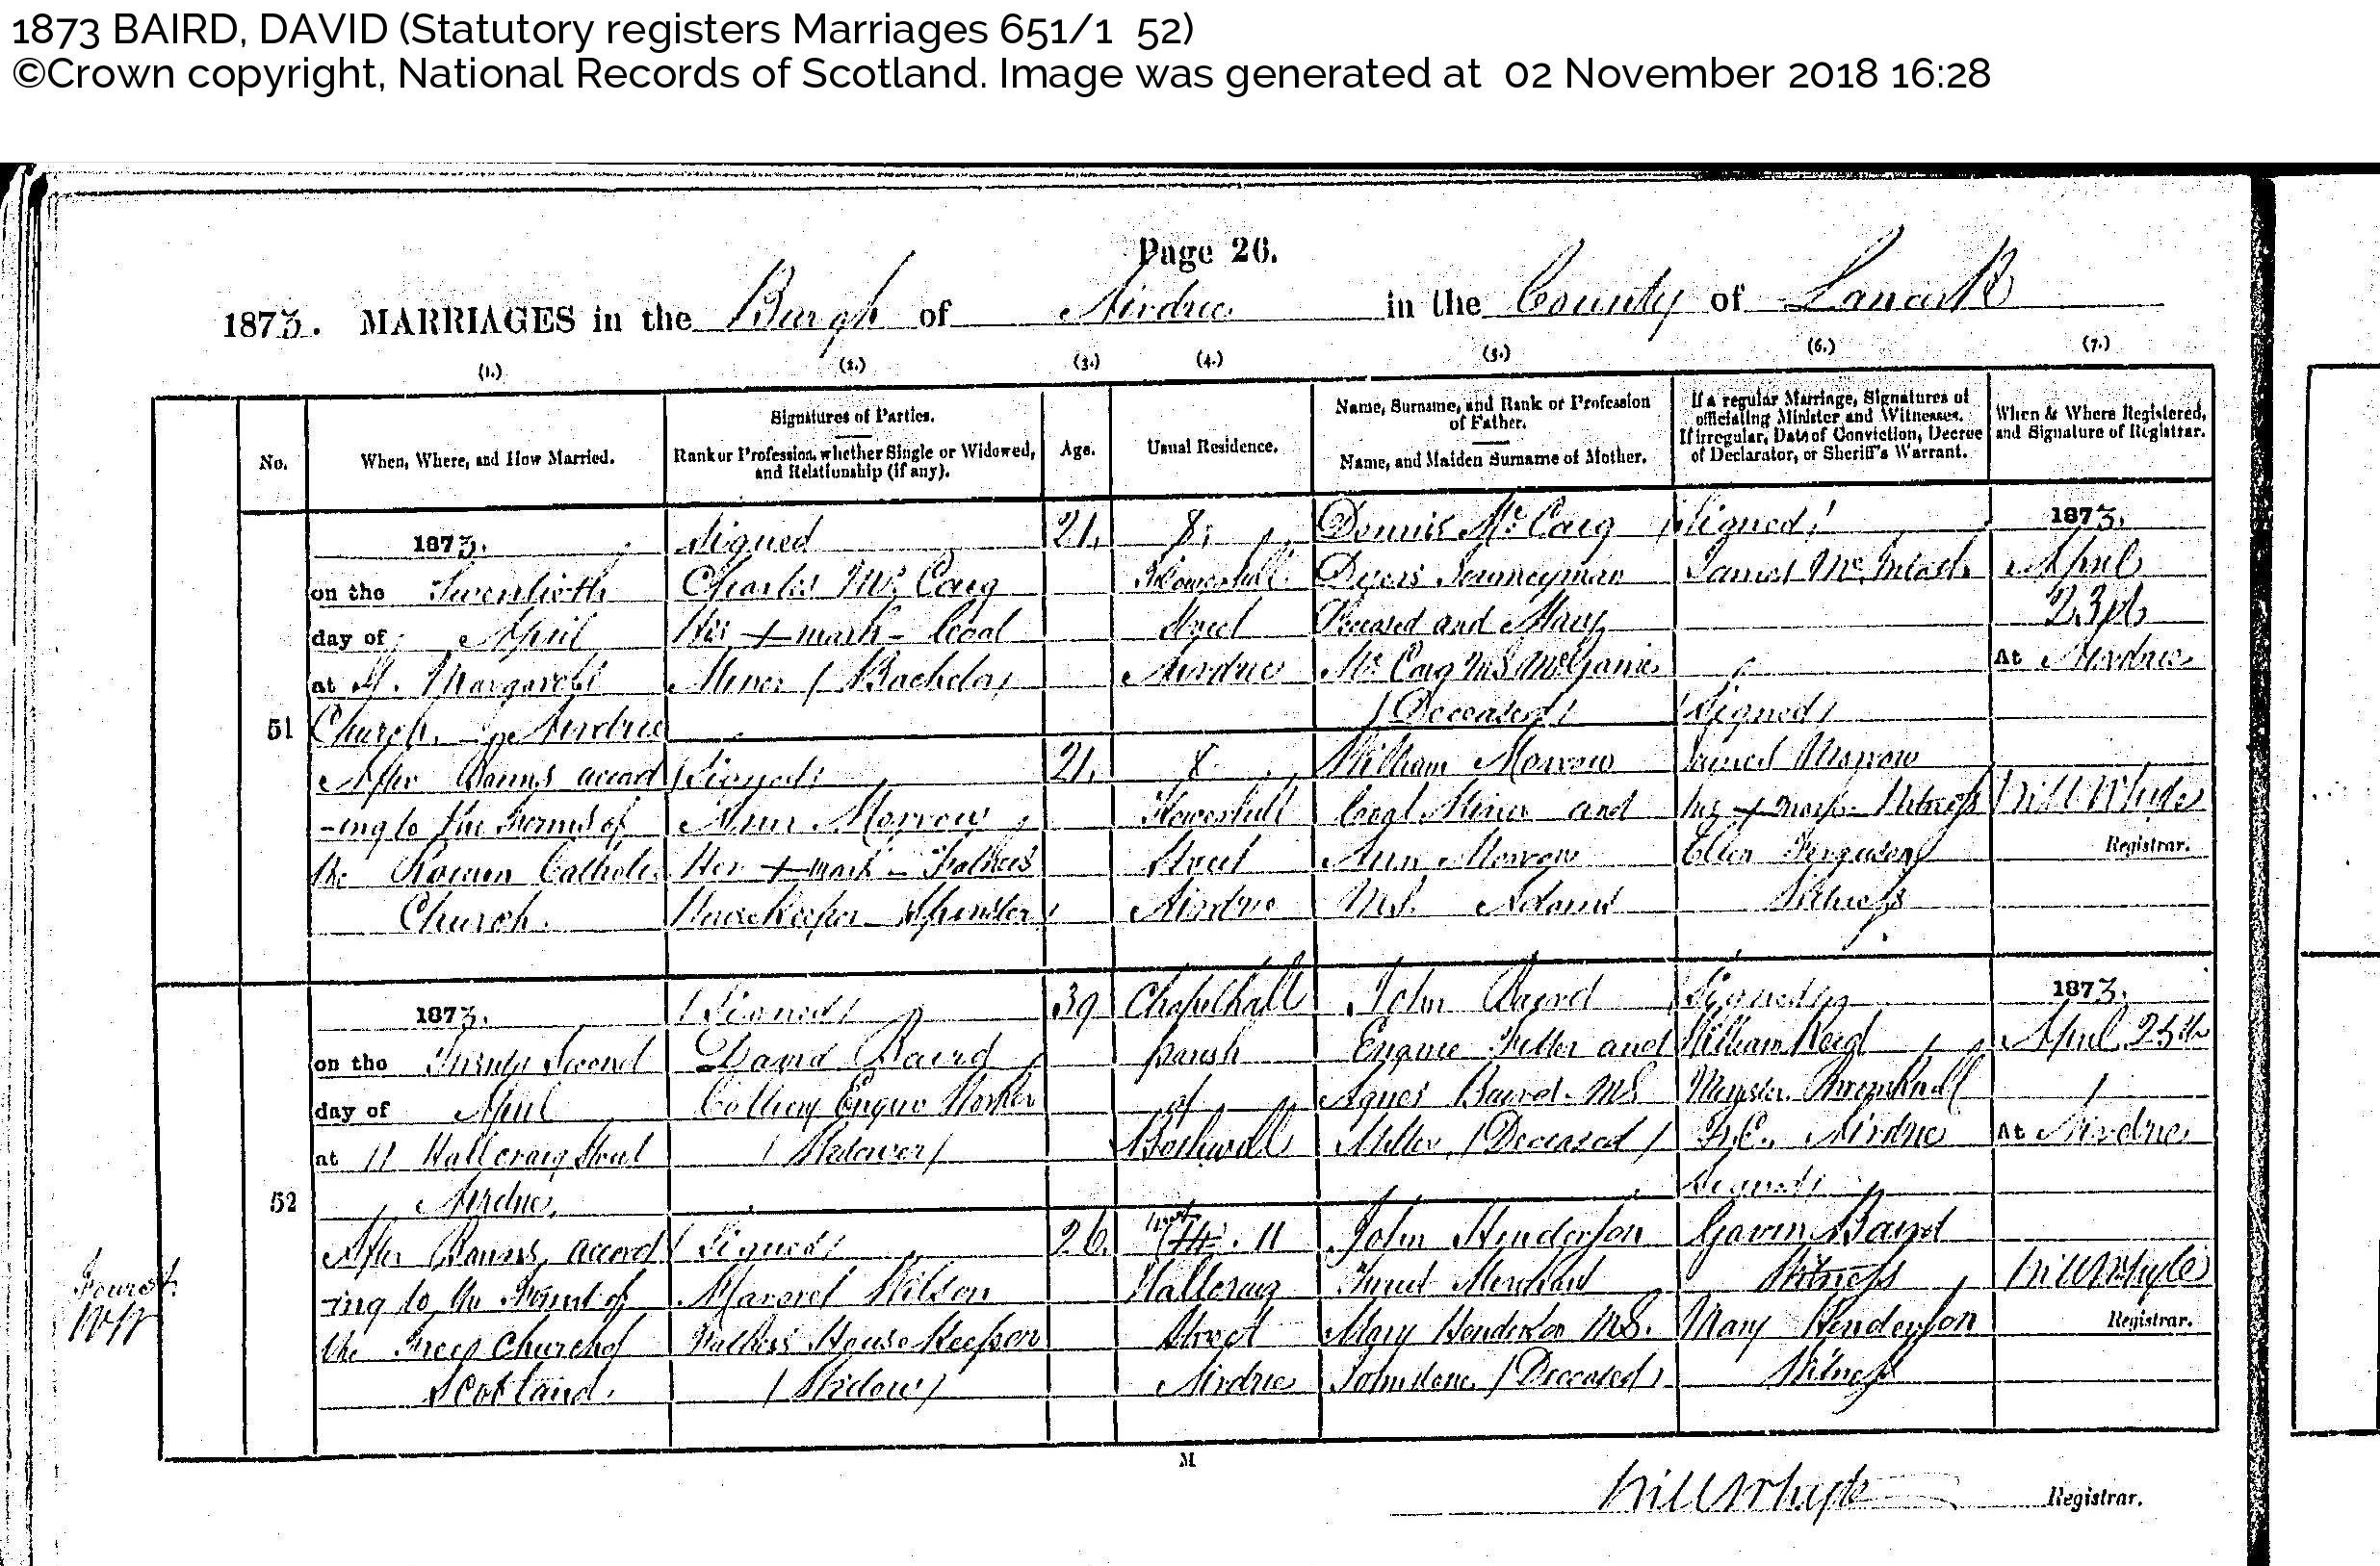 1873 BAIRD, DAVID (Statutory registers Marriages 651/1 52)
©Crown copyright, National Records of Scotland. Image was generated at 02 November 2018 16:28
Page 26.
1873. MARRIAGES in the Burgh of Airdrie in the County of Lanark
(1.) (2.) (3.) (4.) (5.) (6.) (7.)
No.
When, Where, and How Married.
Signatures of Parties.
Rank or Profession, whether Single or Widowed,
and Relationship (if any).
Age.
Usual Residence.
Name, Surname, and Rank or Profession
of Father.
Name, and Maiden Surname of Mother.
If a regular Marriage, Signatures of
officiating Minister and Witnesses.
If irregular, Date of Conviction, Decree
of Declarator, or Sheriff's Warrant.
When & Where Registered,
and Signature of Registrar.
51
1873.
on the Twentieth
day of April
at St. Margarets
Church, Airdrie
After Banns accord
-ing to the Forms of
the Roman Catholic
Church.
Signed
Charles McCaig
His + mark - Coal
Miner (Bachelor)
(Signed)
Ann Morrow
Her + mark - Father's
HouseKeeper Spinster
21.
21.
8,
Flowerhill
Street
Airdrie
8
Flowerhill
Street
Airdrie
Dennis McCaig
Dyers Journeyman
Deceased and Mary
McCaig MS
(Deceased)
William Morrow
Coal Miner and
Ann Morrow
MS. Adams
(Signed)
James McIntosh
(Signed)
James Morrow
his + mark Witness
Ellen Ferguson
Witness
1873.
April
23rd
At Airdrie
Will Whyte
Registrar.
52
1873.
on the Twenty Second
day of April
at 11 Hallcraig Street
Airdrie,
After Banns, accord
-ing to the Forms of
the Free Church of
Scotland.
(Signed)
David Baird
Colliery Engine
(Widower)
(Signed)
Margret Wilson
Father's House Keeper
(Widow)
39
26.
Chapelhall
parish
of
Bothwell
11
Hallcraig
Street
Airdrie
John Baird
Engine Fitter and
Agnes Baird. MS
Miller (Deceased)
John Henderson
Merchant
Mary Henderson MS.
Johnstone (Deceased)
(Signed)
William Reid
Minister
F.C. Airdrie
(Signed)
Gavin Baird
Witness
Mary Henderson
Witness
1873.
April 25th
At Airdrie
Will Whyte
Registrar.
M
Will Whyte Registrar.